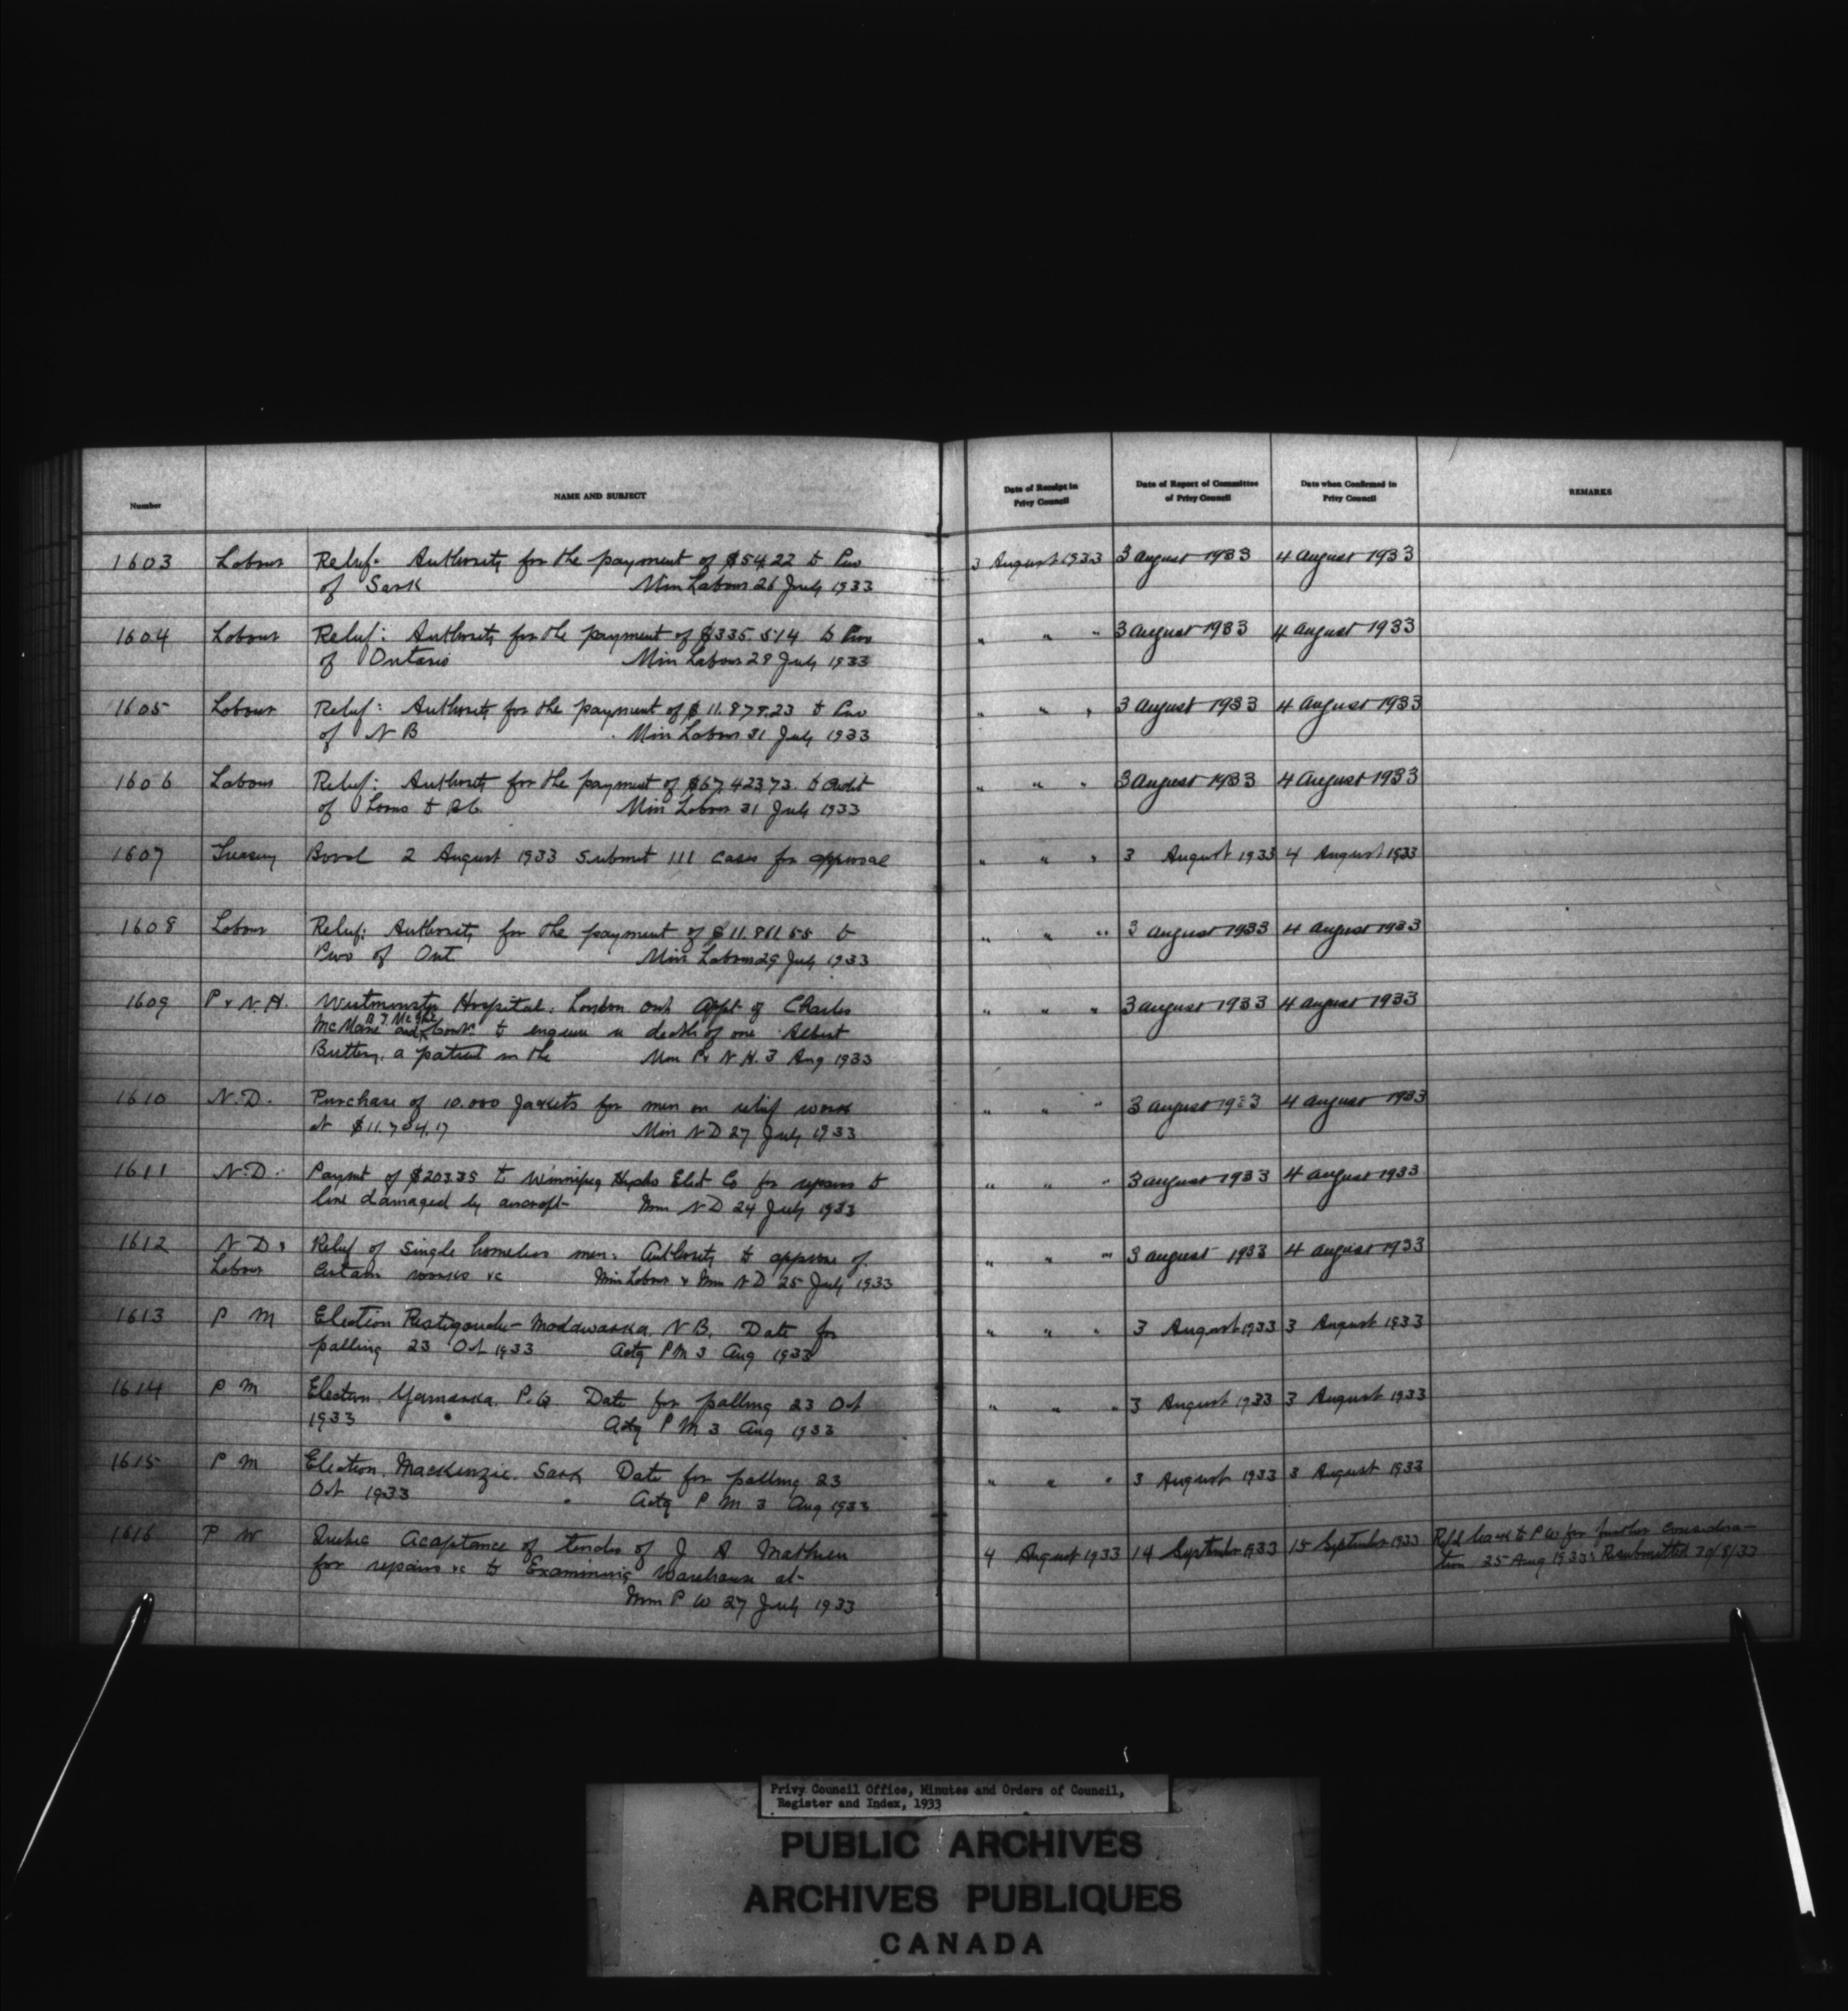 Number
NAME AND SUBJECT
Date of Receipt in
Privy Council
Date of Report of Committee
of Privy Council
Date when Confirmed in
Privy Council
REMARKS
1603 Labour Relief: Authority for the payment of $54.22 to Prov 3 August 1933 3 August 1933 4 August 1933
of Sask Min Labour 26 July 1933
1604 Labour Relief: Authority for the payment of $335.514 to Prov " " " 3 August 1933 4 August 1933
of Ontario Min Labour 29 July 1933
1605 Labour Relief: Authority for the payment of $11.879.23 to Prov " " " 3 August 1933 4 August 1933
of N B Min Labour 31 July 1933
1606 Labour Relief: Authority for the payment of $67.423.73 to Credit " " " 3 August 1933 4 August 1933
of Loans to B.C. Min Labour 31 July 1933
1607 Treasury Board 2 August 1933 submit 111 cases for approval " " " 3 August 1933 4 August 1933
1608 Labour Relief: Authority for the payment of $11.861.55 to " " " 3 August 1933 4 August 1933
Prov of Ont Min Labour 29 July 1933
1609 P & N.H. Westminster Hospital, London Ont Appt of Charles " " " 3 August 1933 4 August 1933
and to enquire in death of one Albert
Buttery, a patient in the Min P & N.H. 3 Aug 1933
1610 N.D. Purchase of 10.000 Jackets for men on relief work " " " 3 August 1933 4 August 1933
at $11.704.17 Min N D 27 July 1933
1611 N.D. Paymt of $203.35 to Winnipeg Hydro Elect Co for repairs to " " " 3 August 1933 4 August 1933
line damaged by aircraft Min N D 24 July 1933
1612 N D & Relief of single homeless men: Authority to approve of " " " 3 August 1933 4 August 1933
Labour certain works &c Min Labour & Min N D 25 July 1933
1613 P M Election Restigouche-Madawaska, N B. Date for " " " 3 August 1933 3 August 1933
polling 23 Oct 1933 Actg P M 3 Aug 1933
1614 P M Election Yamaska, P.Q. Date for polling 23 Oct " " " 3 August 1933 3 August 1933
1933 Actg P M 3 Aug 1933
1615 P M Election, Mackenzie, Sask Date for polling 23 " " " 3 August 1933 3 August 1933
Oct 1933 Actg P M 3 Aug 1933
1616 P W Quebec Acceptance of tender of J A Mathieu 4 August 1933 14 September 1933 15 September 1933 Refd back to P W for further considera-
for repairs &c to Examining Warehouse at- tion 25 Aug 1933: Resubmitted 30/8/33
Min P W 27 July 1933
Privy Council Office, Minutes and Orders of Council,
Register and Index, 1933
PUBLIC ARCHIVES
ARCHIVES PUBLIQUES
CANADA